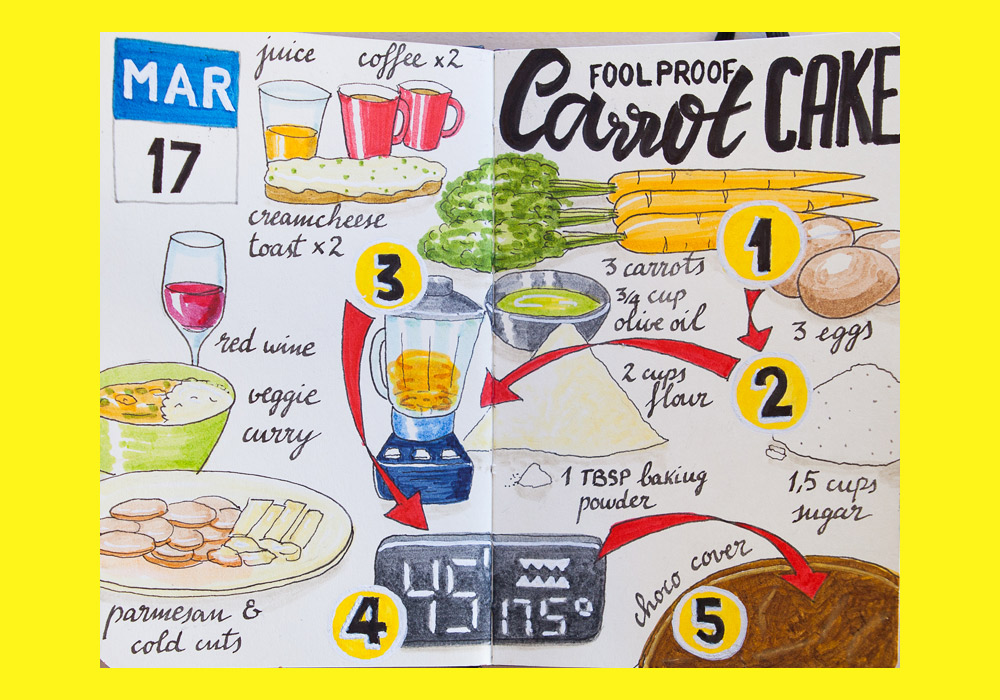 MAR
17
juice
coffee x2
creamcheese
toast x2
red wine
veggie
curry
parmesan &
cold cuts
FOOLPROOF
Carrot CAKE
1
3 carrots
3 eggs
3/4 cup
olive oil
2
2 cups
flour
1 TBSP baking
powder
1,5 cups
sugar
3
4
175°
choco cover
5